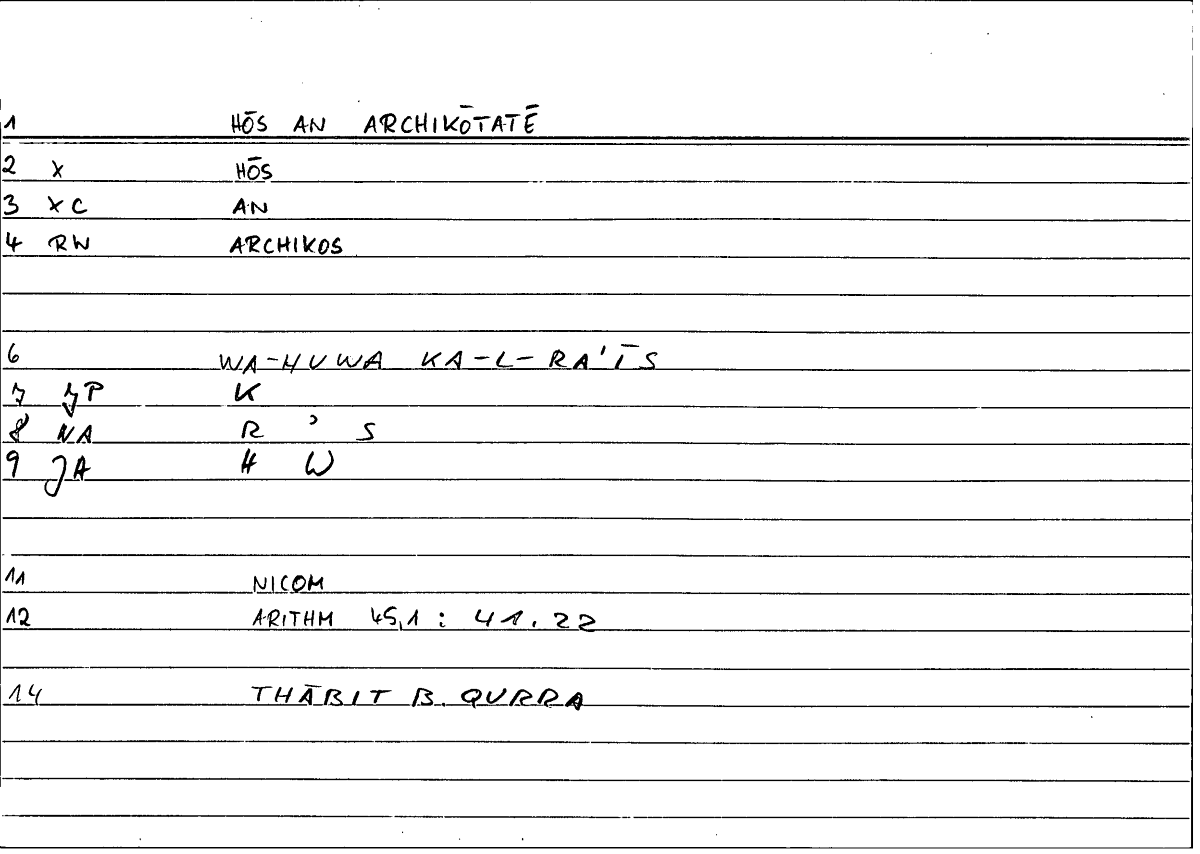 1 HŌS AN ARCHIKŌTATĒ
2 X HŌS
3 XC AN
4 RW ARCHIKOS
6 WA-HUWA KA-L-RA'ĪS
7 JP K
8 NA R ʾ S
9 JA H W
11 NICOM
12 ARITHM 45,1 : 41.22
14 THĀBIT B. QURRA